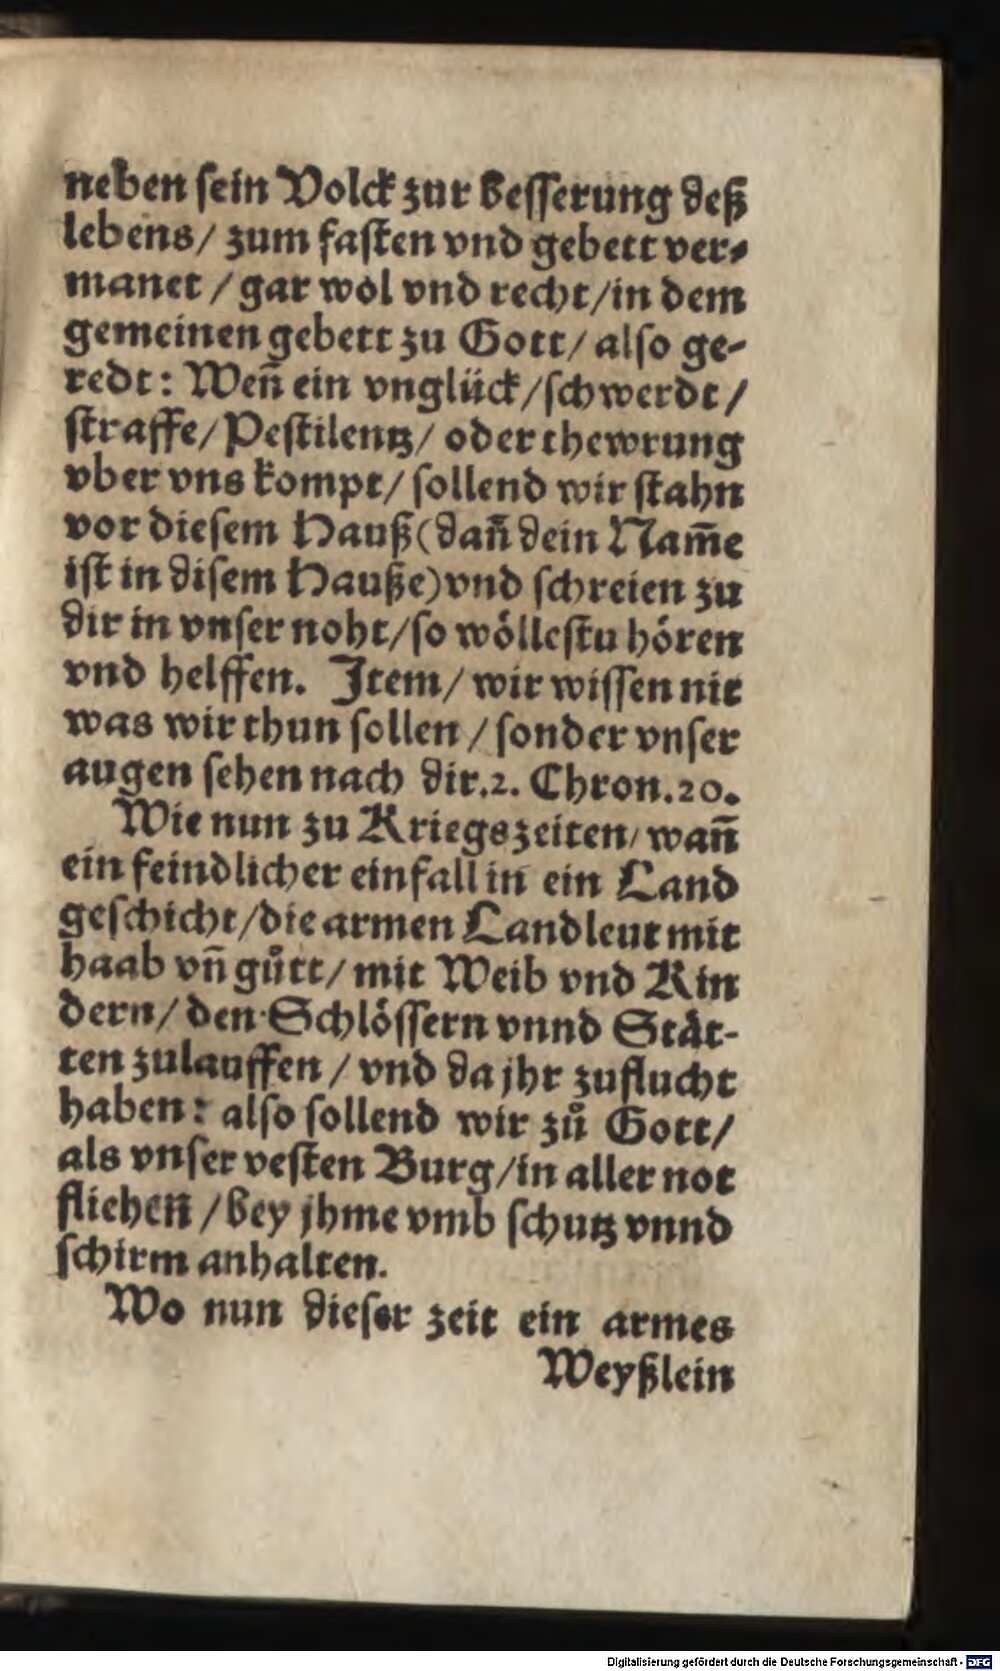 neben sein Volck zur besserung deß
lebens/ zum fasten vnd gebett ver-
manet / gar wol vnd recht/in dem
gemeinen gebett zu Gott/ also ge-
redt: Weñ ein vnglück/schwerdt/
straffe/Pestilentz/ oder thewrung
vber vns kompt/ sollend wir stahn
vor diesem Hauß(dañ dein Nam̃e
ist in disem Hauße)vnd schreien zu
dir in vnser noht/so wöllestu hören
vnd helffen. Item/ wir wissen nit
was wir thun sollen / sonder vnser
augen sehen nach dir.2. Chron.20.
Wie nun zu Kriegszeiten/ wañ
ein feindlicher einfall in ein Land
geschicht/die armen Landleut mit
haab vñ gůtt/ mit Weib vnd Kin
dern/ den Schlössern vnnd Stät-
ten zulauffen / vnd da jhr zuflucht
haben: also sollend wir zů Gott/
als vnser vesten Burg/in aller not
fliehen /bey jhme vmb schutz vnnd
schirm anhalten.
Wo nun dieser zeit ein armes
Weyßlein
Digitalisierung gefördert durch die Deutsche Forschungsgemeinschaft - DFG